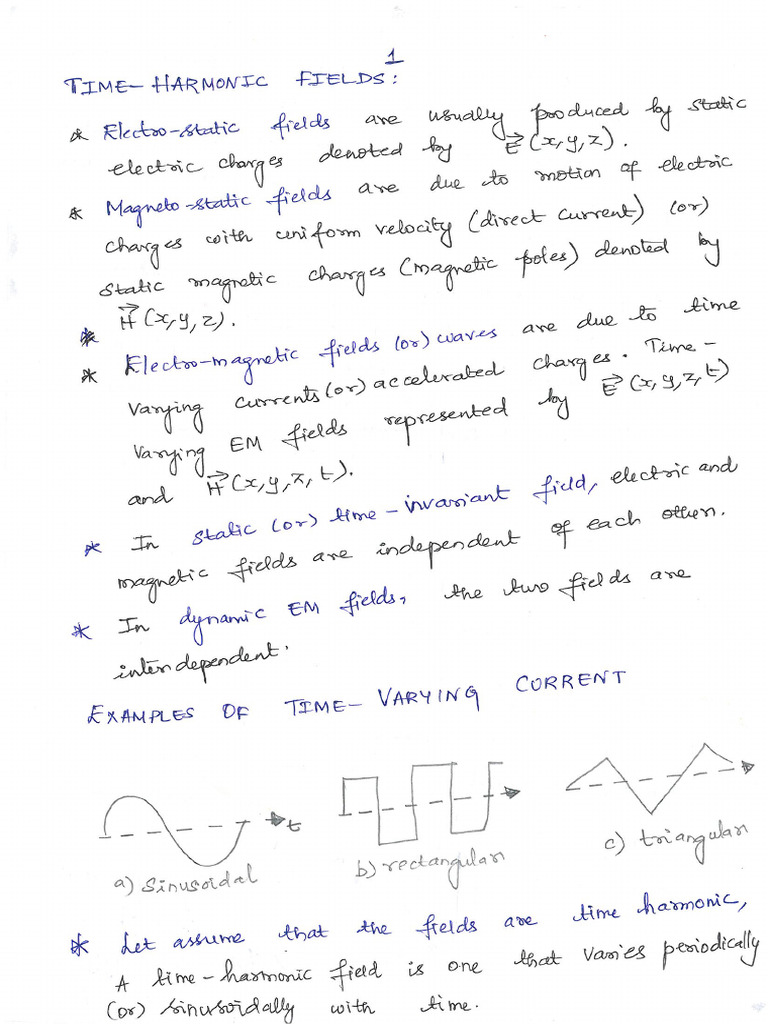 1
TIME-HARMONIC FIELDS:
* Electro-static fields are usually produced by static
electric charges denoted by E⃗(x,y,z).
* Magneto-static fields are due to motion of electric
charges with uniform velocity (direct current) (or)
static magnetic charges (magnetic poles) denoted by
* H⃗(x,y,z).
* Electro-magnetic fields (or) waves are due to time
varying currents (or) accelerated charges. Time-
varying EM fields represented by E⃗(x,y,z,t)
and H⃗(x,y,z,t).
* In static (or) time-invariant field, electric and
magnetic fields are independent of each other.
* In dynamic EM fields, the two fields are
interdependent.
EXAMPLES OF TIME-VARYING CURRENT
t
a) Sinusoidal b) rectangular c) triangular
* Let assume that the fields are time harmonic,
A time-harmonic field is one that varies periodically
(or) sinusoidally with time.